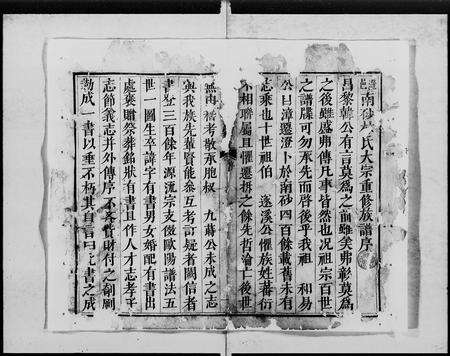 南砂尹氏大宗重修族譜序
昌黎韓公有言莫爲之前雖美弗彰莫爲
之後雖盛弗傳凡事皆然也况祖宗百世
之譜牒可勿承先而啓後乎我祖 和易
公曰漳遷澄卜於南砂四百餘載舊未有
志乘也十世祖伯 遂溪公懼族姓蕃衍
不相聯屬且懼遷拆之餘先哲淪亡後世
無稽考敬承胞叔 九蒔公未成之志
與我族先輩賢能參互考訂疑者闕信者
書登三百餘年源流宗支倣歐陽譜法五
世一圖生卒諱字有書男女婚配有書出
處褒贈祭葬銘狀有書且作人才志孝子
志節義志并外傳序不吝貲財付之剞劂
勒成一書以垂不朽其自言曰是書之成